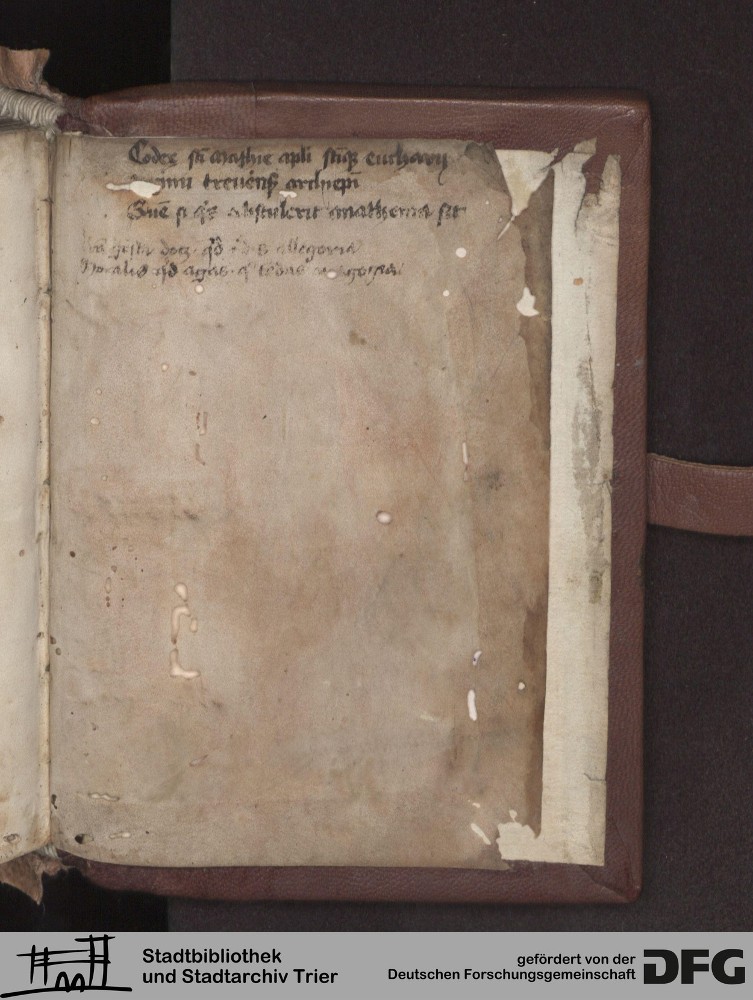 Codex sti Mathie apli stiqz eucharij
primi treueris archiepi
Quē si q's abstulerit anathema sit
gesta docz qd allegoria
Moralis qd agas
Stadtbibliothek
und Stadtarchiv Trier
gefördert von der
Deutschen Forschungsgemeinschaft
DFG